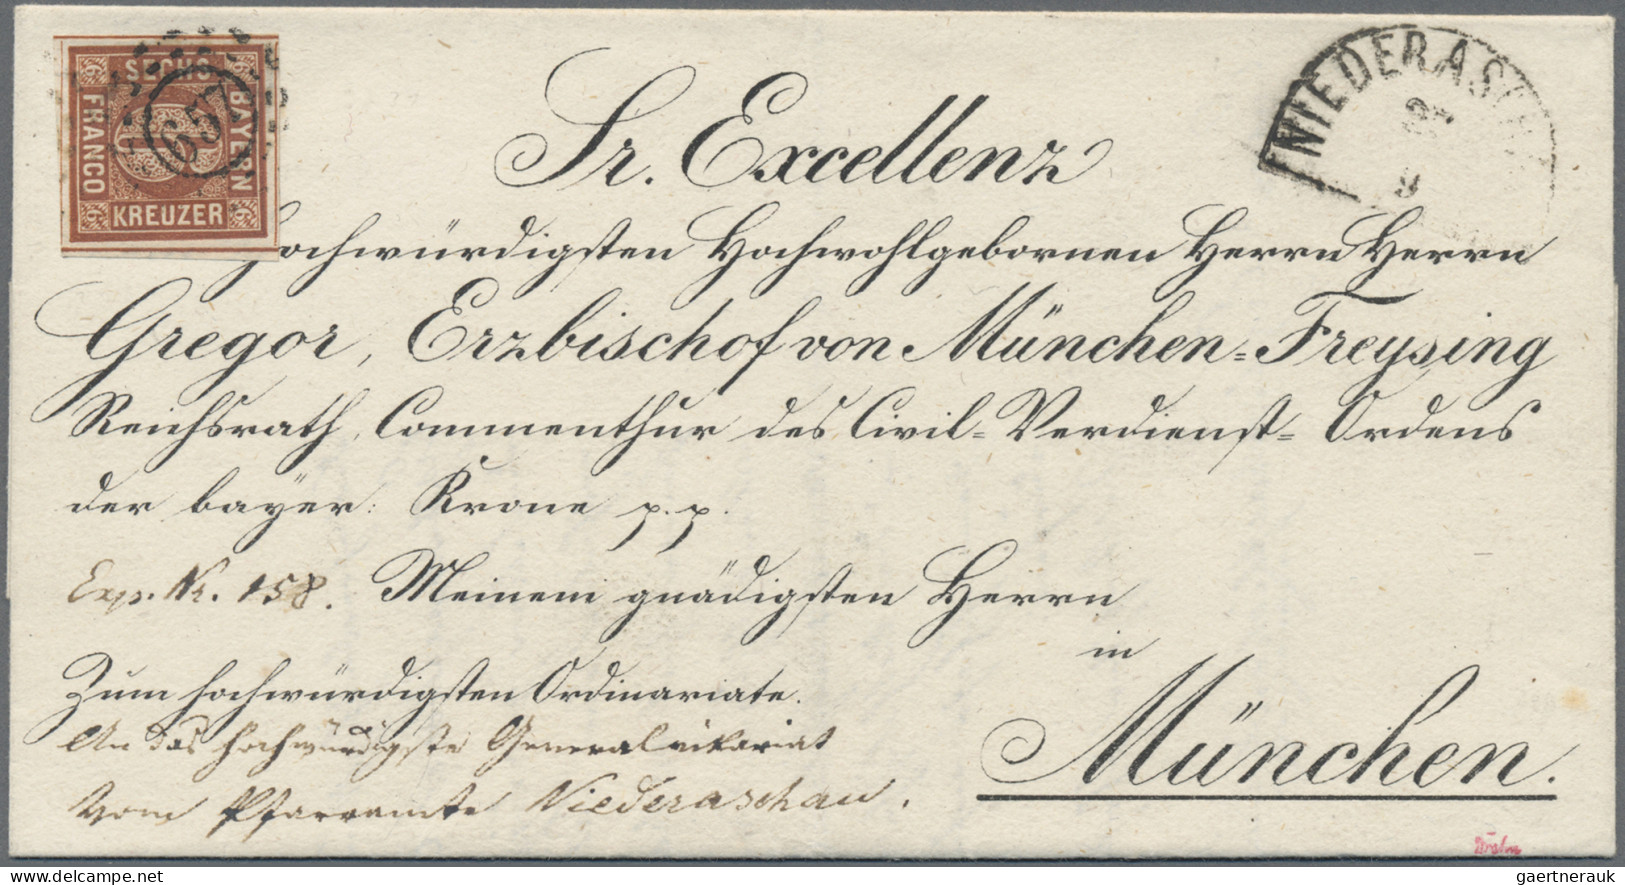 SECHS
BAYERN
FRANCO
KREUZER
6
6
6
6
657
NIEDERASCH
9
Sr. Excellenz
Hochwürdigsten Hochwohlgebornen Herrn Herrn
Gregor, Erzbischof von München=Freysing
Reichsrath, Commenthur des Civil=Verdienst=Ordens
der bayer: Krone p. p.
Exp. Nr. 158. Meinem gnädigsten Herrn
in
Zum hochwürdigsten Ordinariate.
München.
An das hochwürdigste Generalvikariat
Vom Pfarramte Niederaschau.
gaertnerauk